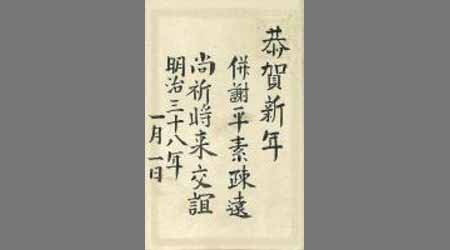 恭賀新年
併謝平素疎遠
尚祈将来交誼
明治三十八年
一月一日